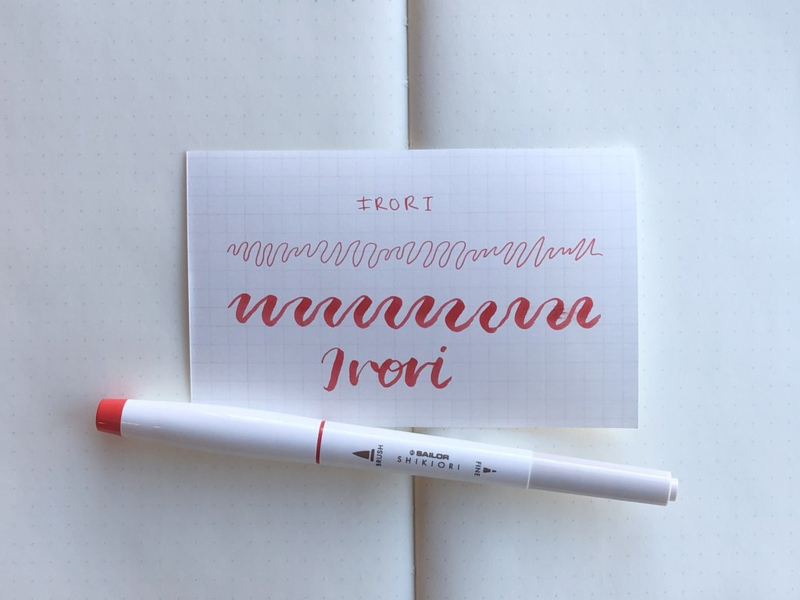 IRORI
Irori
BRUSH
SAILOR
SHIKIORI
FINE